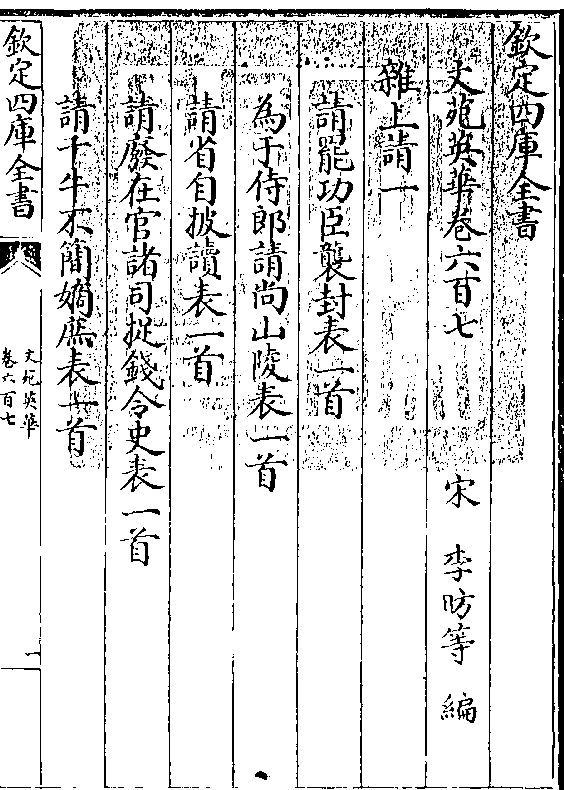 欽定四庫全書
文苑英華卷六百七
宋 李昉等 編
雜上請一
請罷功臣襲封表一首
為于侍郎請尚山陵表一首
請省自披讀表一首
請廢在官諸司捉錢令史表一首
請千牛不簡嫡庶表一首
欽定四庫全書
文苑英華
卷六百七
一